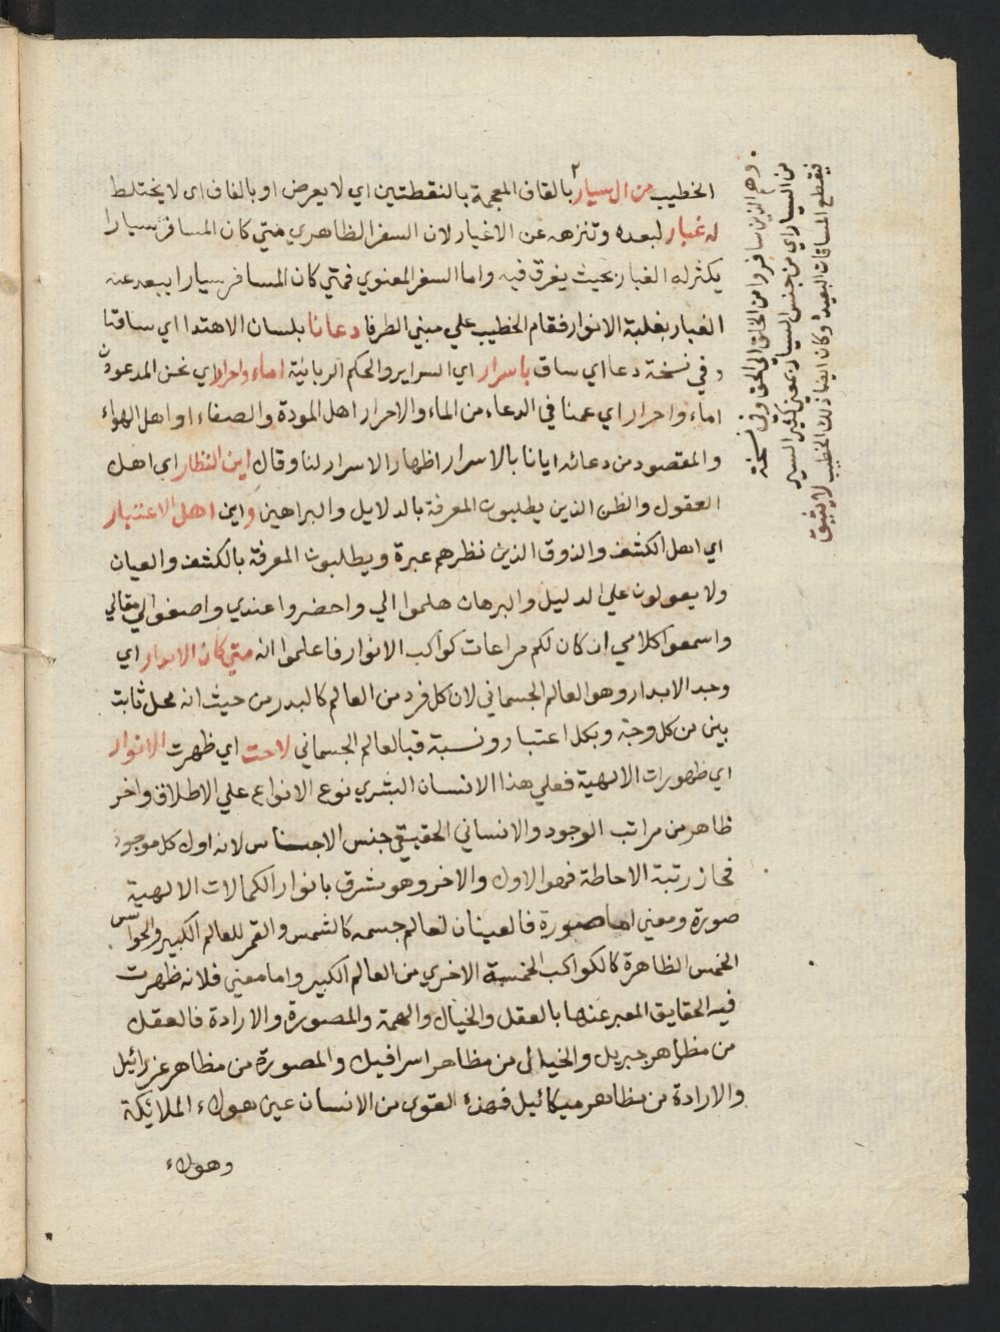 الخطيب من ال سيار بالقاف المعجمة بالنقطتين اي لا يعرض او بالفاف اى لا يختلط
له غبار لبعده وتنزهه عن الاغيار لان السفر الظاهري متي كان المسافر سيارا
يكثر له الغبار بحيث يغرق فيه واما السفر المعنوي فمتي كان المسافر سيارا يبعد عنه
الغبار بغلبة الانوار فقام الخطيب علي مبني الطرفا دعانا بلسان الاهتدا اي ساقنا
وفي نسخة دعا اي ساق باسرار اي السراير والحكم الربانية اماء واحرار اي نحن المدعون
اماء واحرار اي عمنا في الدعاء من الماء والاحرار اهل المودة والصفاء او اهل الهواء
والمقصود من دعائه ايانا بالاسرار اظهار الاسرار لنا وقال اين النظار اي اهل
العقول والظن الذين يطلبون المعرفة بالدلايل والبراهين واين اهل الاعتبار
اي اهل الكشف والذوق الذين نظرهم عبرة ويطلبون المعرفة بالكشف والعيان
ولا يعولون علي الدليل والبرهان هلموا الي واحضروا عندي واصغوا الي مقالي
واسمعوا كلامي ان كان لكم مراعات كواكب الانوار فاعلموا انه متي كان الابدار اي
وجد الابدار وهو العالم الجسماني لان كل فرد من العالم كالبدر من حيث انه محل ثابت
بين من كل وجه وبكل اعتبار ونسبة فبالعالم الجسماني لاحت اي ظهرت الانوار
اي ظهورات الالهية فعلي هذا الانسان البشري نوع الانواع علي الاطلاق واخر
ظاهر من مراتب الوجود والانساني الحقيقي جنس الاجناس لانه اول كل موجود
فحاز رتبة الاحاطة فهو الاول والاخر وهو مشرق بانوار الكمالات الالهية
صورة ومعني اما صورة فالعينان لعالم جسمه كالشمس والقمر للعالم الكبير والحواس
الخمس الظاهرة كالكواكب الخمسة الاخري من العالم الكبير واما معني فلانه ظهرت
فيه الحقايق المعبر عنها بالعقل والخيال والهمة والمصورة والارادة فالعقل
من مظاهر جبريل والخيال من مظاهر اسرافيل والمصورة من مظاهر عزرائيل
والارادة من مظاهر ميكائيل فهذه القوي من الانسان عين هولاء الملائكة
وهولاء
وهم الذين سافروا من الخلق الى الحق وفي نسخة
من السيار اي من جنس السيار بمعني كثير السير
فيقطع المسافات البعيدة وكان ايضا ذلك الخطيب لا يشيق